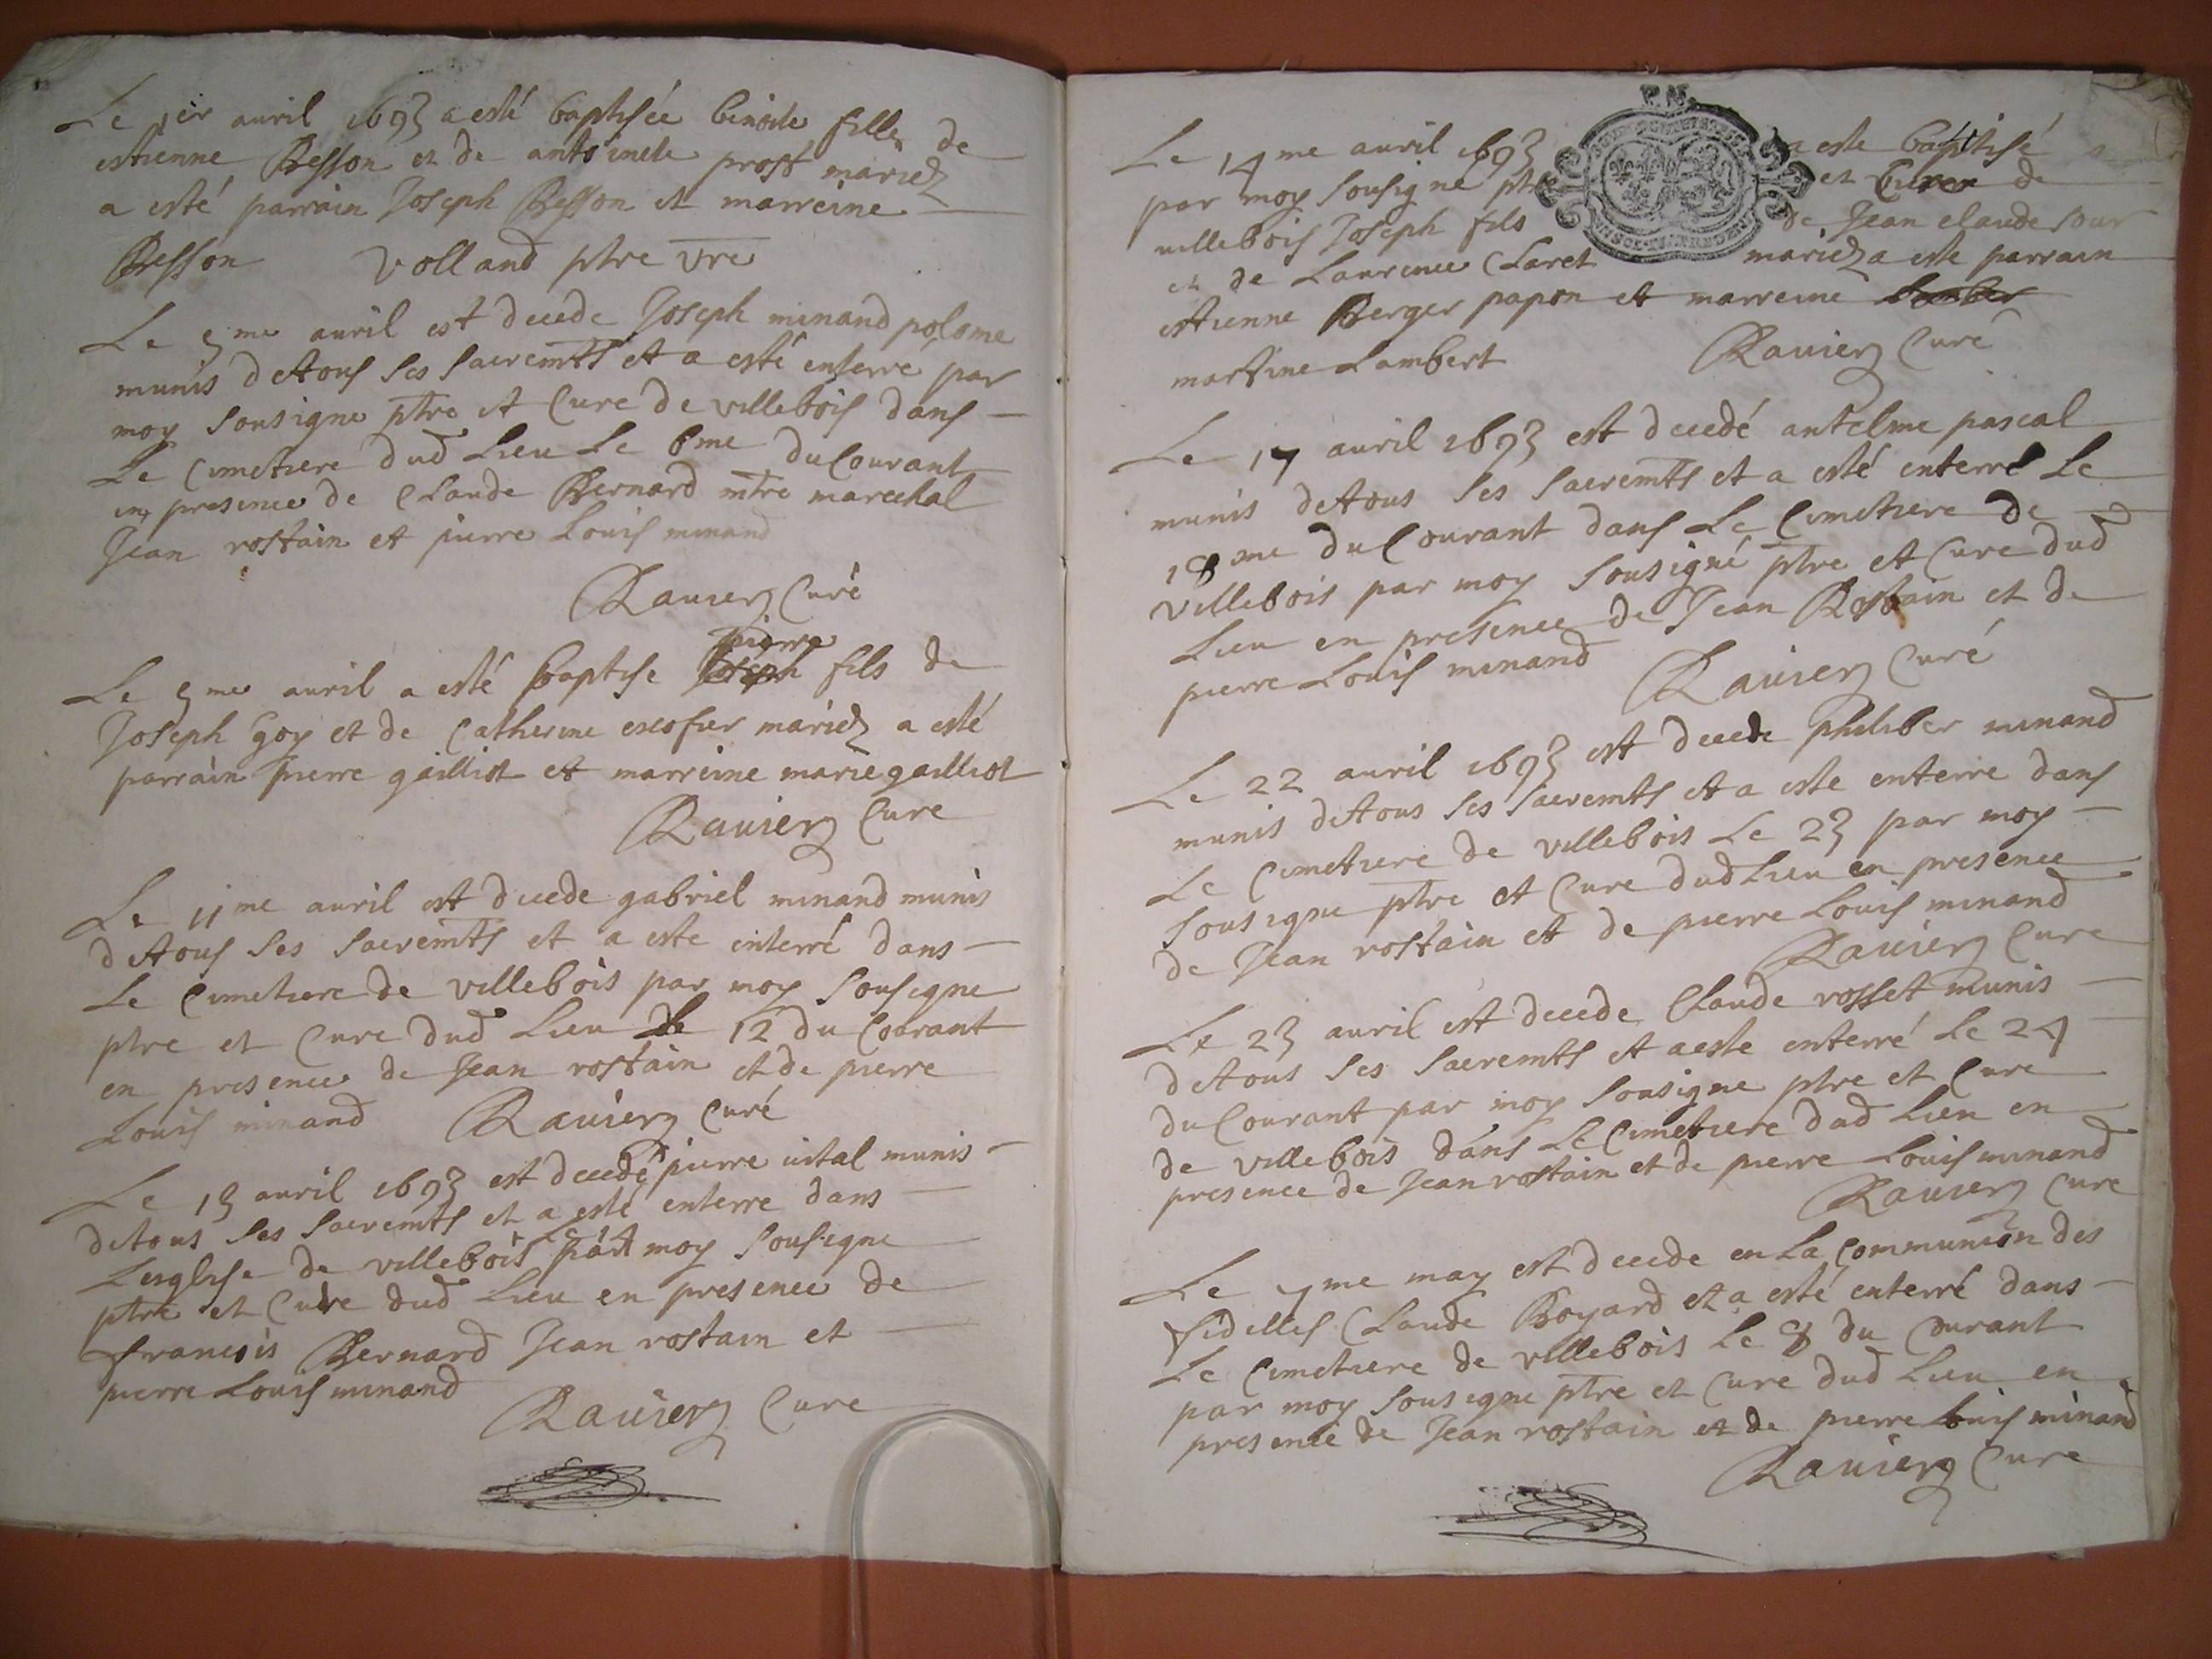 Le 1er auril 1693 a esté baptisée benoite fille de
estienne Besson et de antoinete prost mariez
a esté parrain Joseph Besson et marreine
Besson Volland ptre vre
Le 5me auril est decede Joseph minand polome
munis detous ses sacremts et a esté enterré par
moy sousigne ptre et Cure de villebois dans
Le Cimetiere dud Lieu Le 6me du Courant
en presence de Claude Bernard mtre marechal
Jean rostain et pierre Louis minand
Rauier Curé
Le 5me auril a esté baptise Joseph pierre fils de
Joseph Goy et de Catherine escofier mariez a esté
parrain pierre gailliot et marreine marie gailliot
Rauier Cure
Le 11me auril est decede gabriel minand munis
detous ses sacremts et a este enterré dans
Le Cimetiere de villebois par moy sousigne
ptre et Cure dud Lieu Le 12 du Courant
en presence de Jean rostain et de pierre
Louis minand Rauier Curé
Le 13 auril 1693 est decedé pierre uital munis
detous ses sacremts et a esté enterre dans
Lesglise de villebois par moy sousigne
ptre et Cure dud Lieu en presence de
francois Bernard Jean rostain et
pierre Louis minand
Rauier Cure
Le 14me auril 1693 a este baptisé
par moy sousigne ptre et Cure de
villebois Joseph fils de Jean claude
et de Laurence Claret mariez a este parrain
estienne Berger papon et marreine
martine Lambert Rauier Curé
Le 17 auril 1693 est decedé antelme pascal
munis detous ses sacremts et a esté enterré Le
18me du Courant dans Le Cimetiere de
villebois par moy sousigné ptre et Cure dud
Lieu en presence de Jean Rostain et de
pierre Louis minand Rauier Curé
Le 22 auril 1693 est decede philiber minand
munis detous ses sacremts et a este enterre dans
Le Cimetiere de villebois Le 23 par moy
sousigne ptre et Cure dud Lieu en presence
de Jean rostain et de pierre Louis minand
Rauier Cure
Le 23 auril est decede Claude rosset munis
detous ses sacremts et a este enterré Le 24
du Courant par moy sousigne ptre et Cure
de villebois dans Le Cimetiere dud Lieu en
presence de Jean rostain et de pierre Louis minand
Rauier Cure
Le 7me may est decede en La Communion des
fidelles Claude Boyard et a esté enterré dans
Le Cimetiere de villebois Le 8 du Courant
par moy sousigne ptre et Cure dud Lieu en
presence de Jean rostain et de pierre Louis minand
Rauier Cure